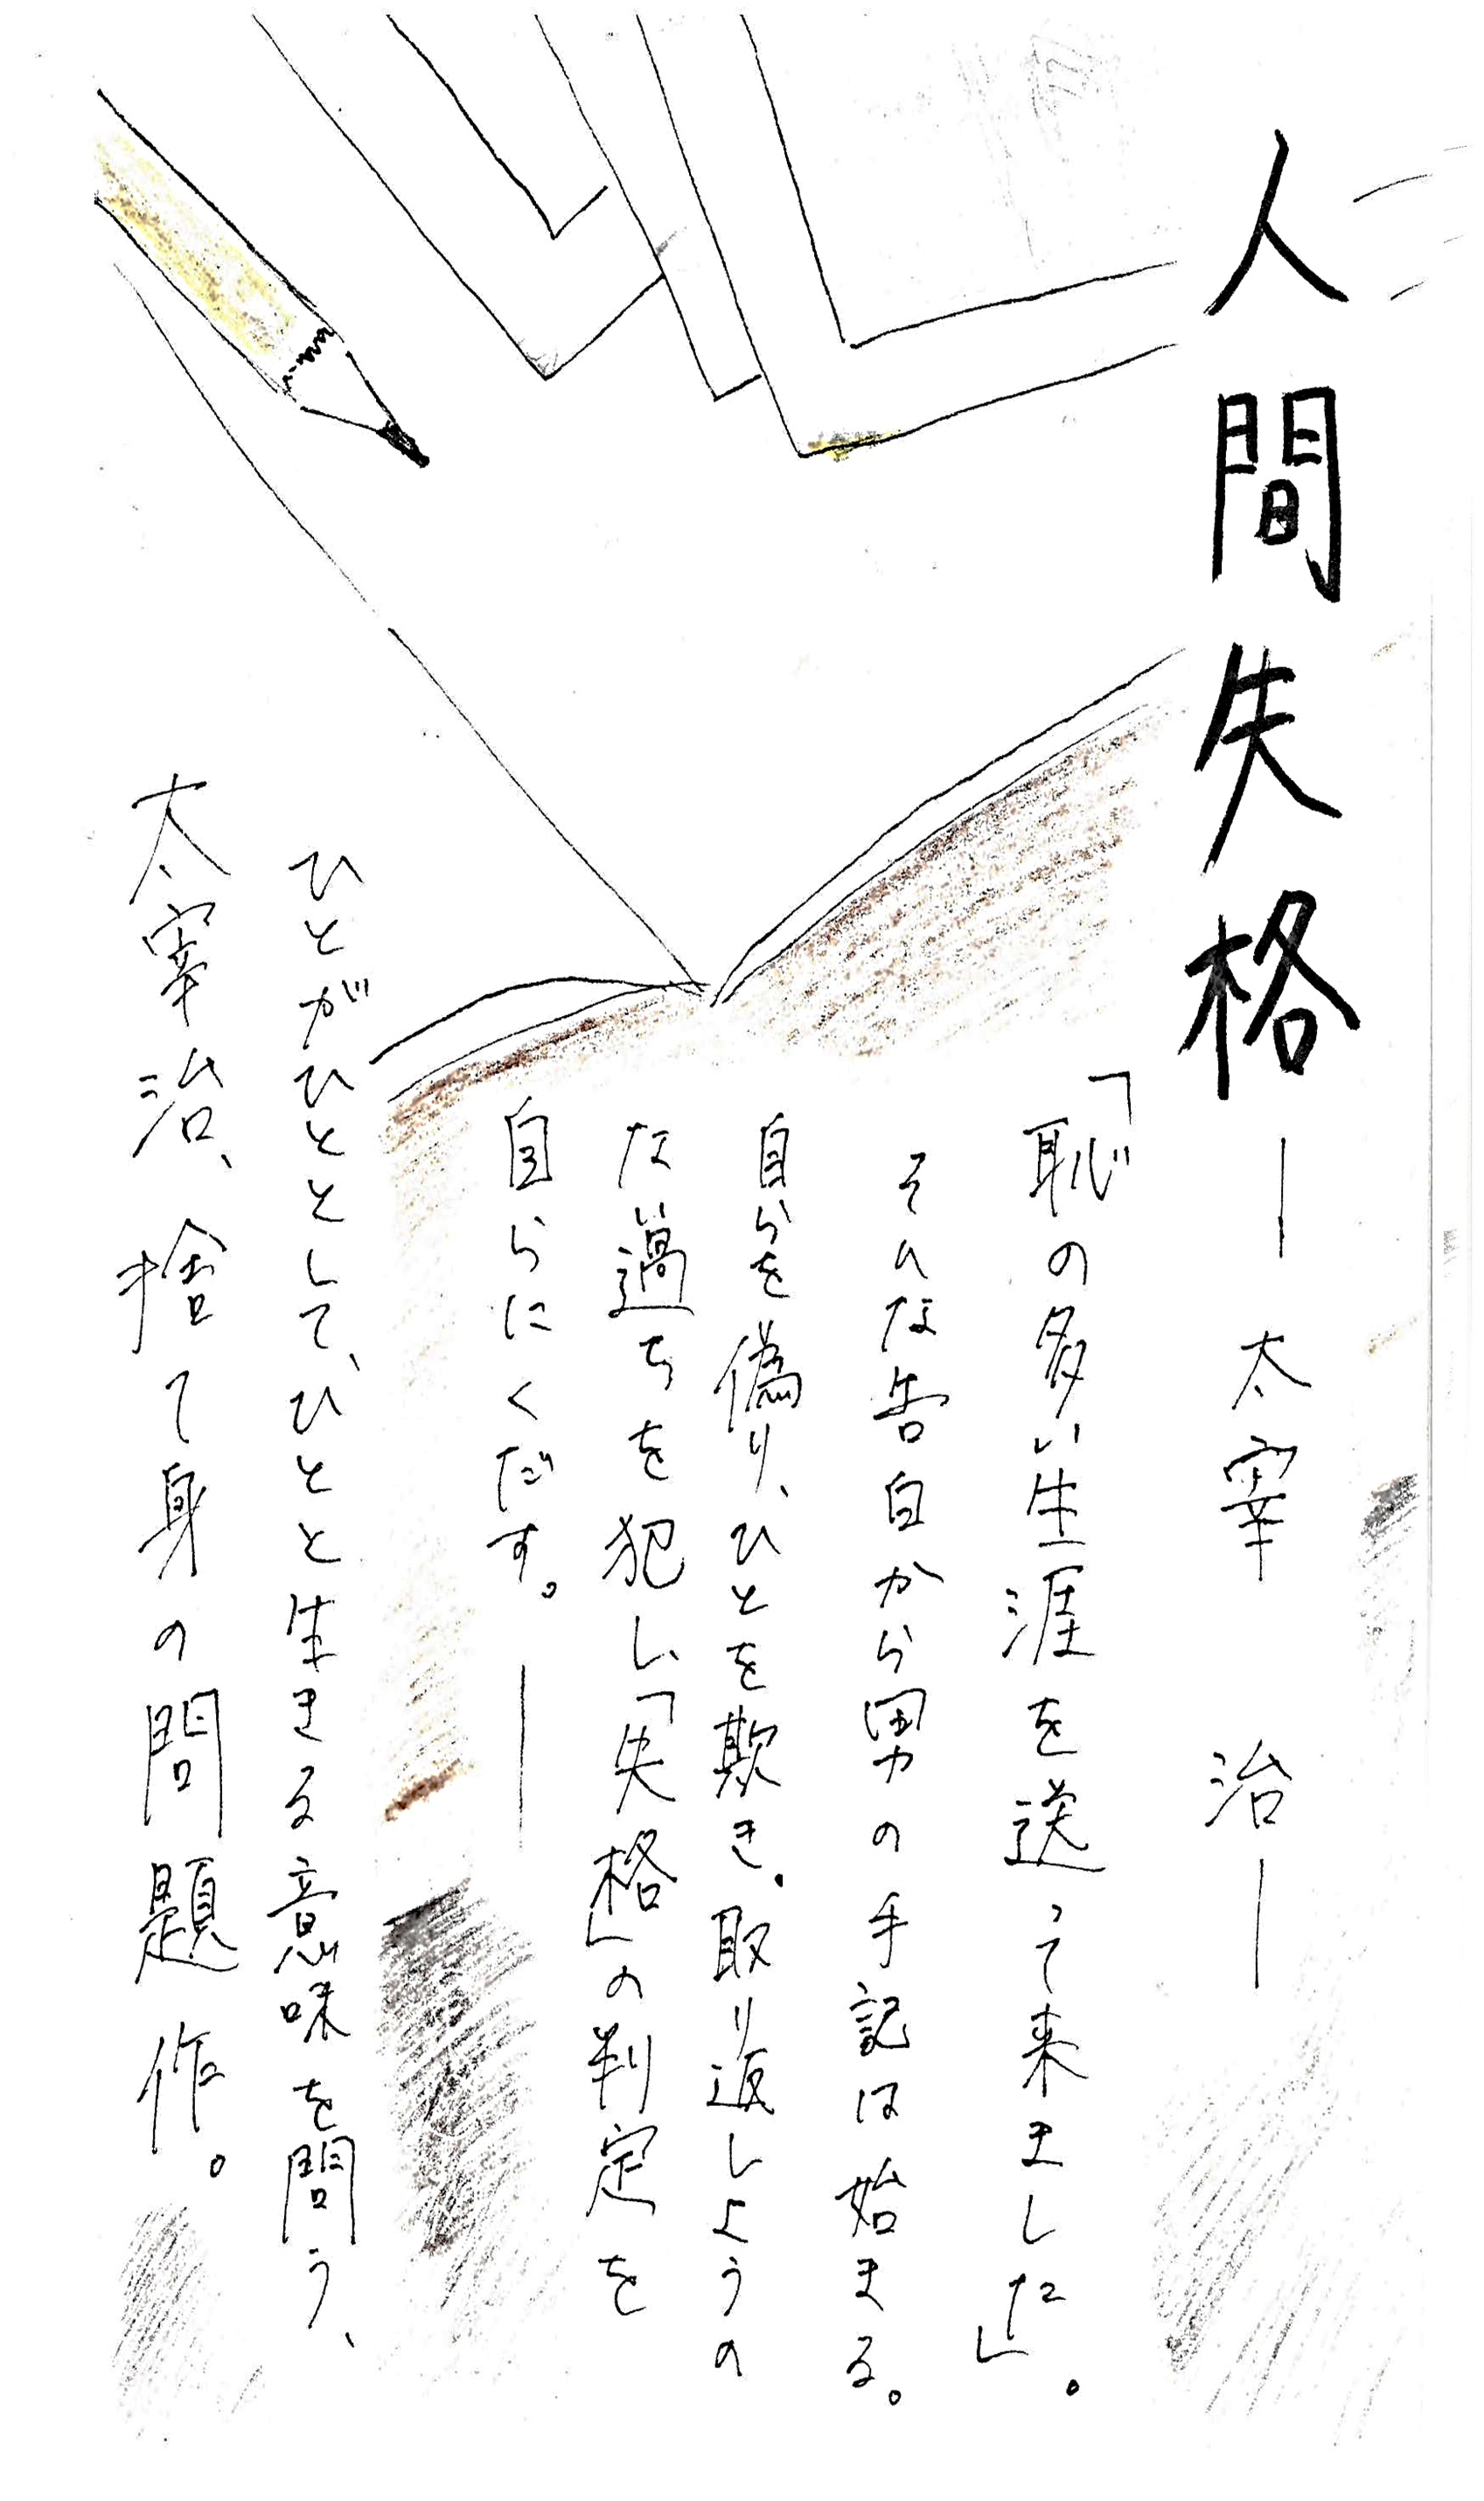 人間失格―太宰 治―
「恥の多い生涯を送って来ました」。
そんな告白から男の手記は始まる。
自らを偽り、ひとを欺き。取り返しようの
ない過ちを犯し、「失格」の判定を
自らにくだす。―
ひとがひととして、ひとと生きる意味を問う、
太宰治、捨て身の問題作。